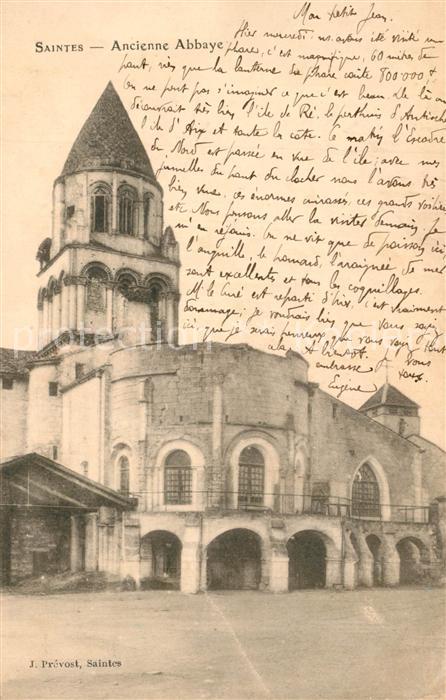 Mon petit Jean.
SAINTES — Ancienne Abbaye
Hier mercredi ns. avons été visité un
phare, c'est magnifique, 60 mètres de
haut, rien que la lanterne du phare coûte 800.000 f.
On ne peut pas s'imaginer ce que c'est beau. De là on
découvrait très bien l'île de Ré. le perthuis d'Antioche
l'île d'Aix et toute la côte. Ce matin l'Escadre
du Nord est passée en vue de l'île; avec mes
jumelles du haut du clocher nous l'avons très
bien vue. ces énormes cuirassés, ces grands
etc. Nous pensons aller la visiter demain, je
m'en réjouis. On ne vit que de poisson ici
l'anguille, le homard, l'araignée de mer
sont excellents et tous les coquillages.
Mr le Curé est reparti d'hier, c'est vraiment
dommage; je voudrais bien que vous soyez
ici, que je serais heureux que vous voyiez tout
cela. A bientôt. Je vous
embrasse tous
Eugène
protected
J. Prévost, Saintes